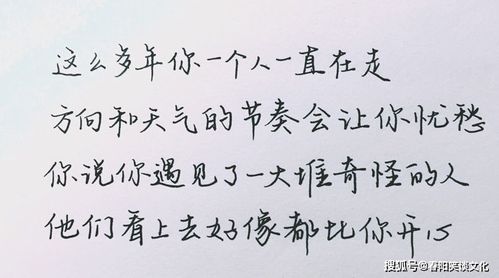 这么多年你一个人一直在走
方向和天气的节奏会让你忧愁
你说你遇见了一大堆奇怪的人
他们看上去好像都比你开心
搜狐号@春阳笑谈文化